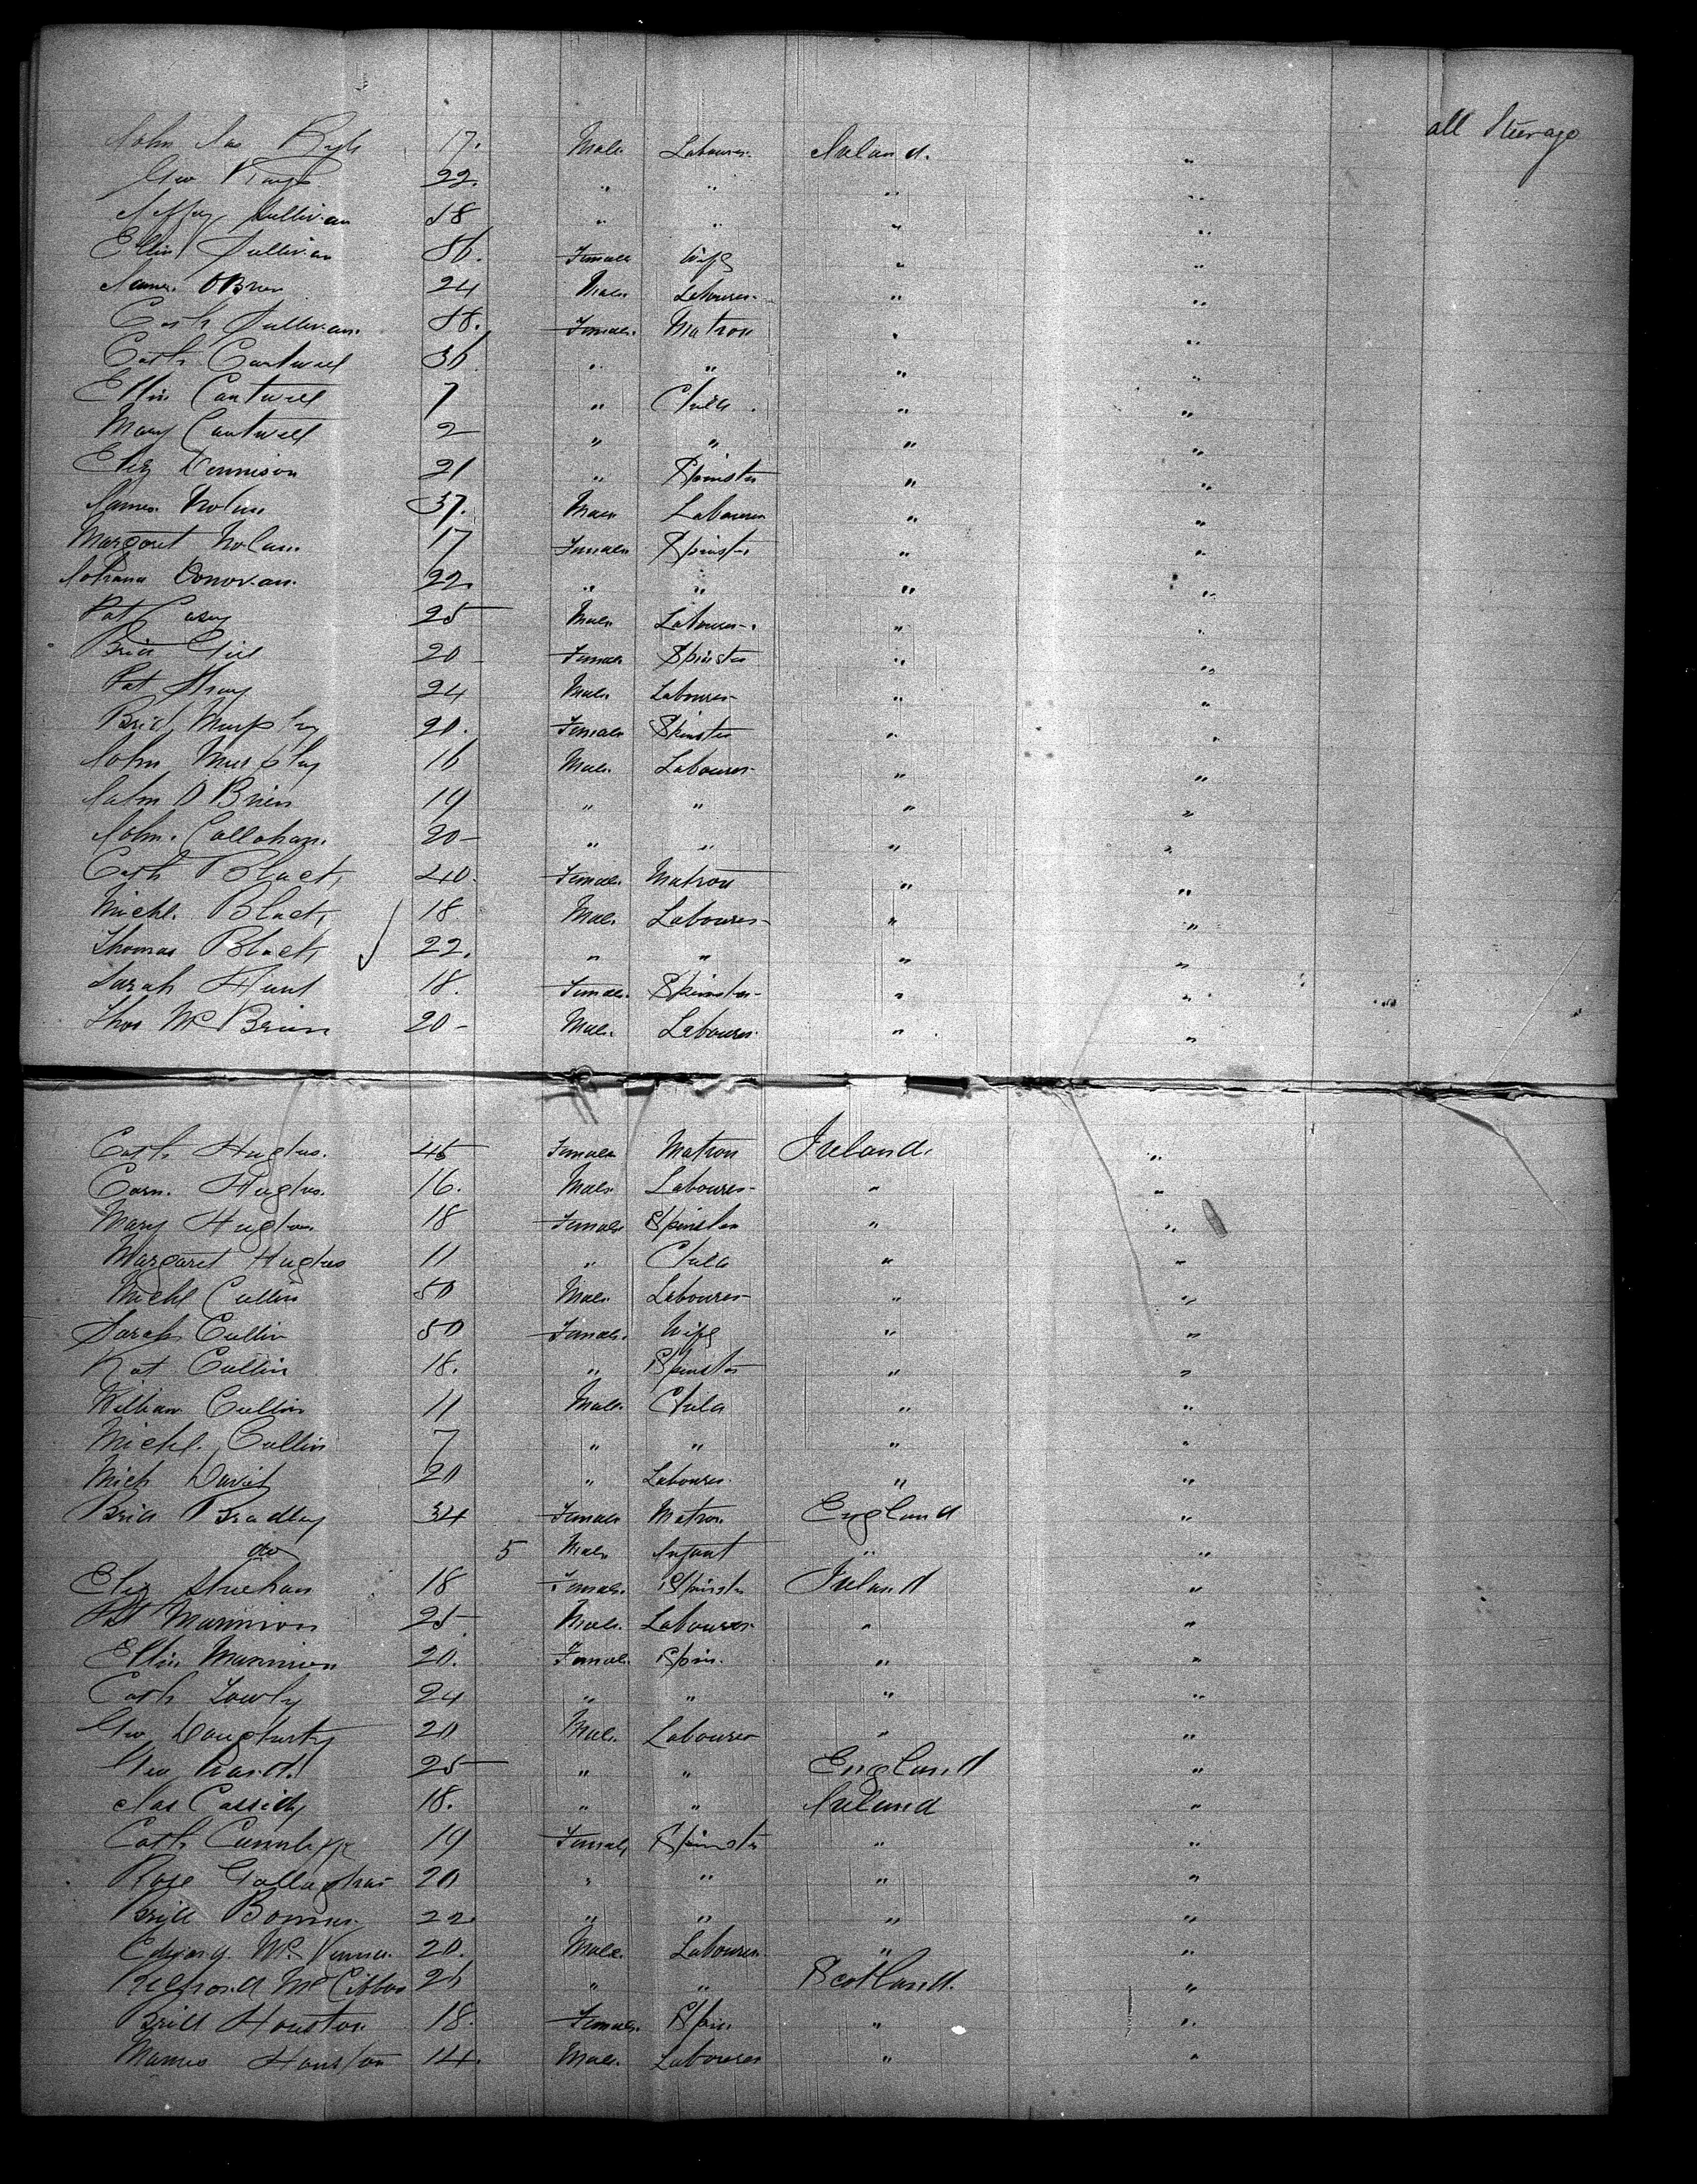 all Steerage
John Jas 17. Male Labourer Ireland. "
Geo 22. " " " "
Sullivan 18 " " " "
Ellin Sullivan 36. Female Wife " "
James OBrien 24 Male Labourer " "
Cath Sullivan. 38. Female Matron " "
Cath Cantwell 36 " " " "
Ellin Cantwell 7 " Child " "
Mary Cantwell 2 " " " "
Eliz Dennison 21 " Spinster " "
James Nolan 37. Male Labourer " "
Margaret Nolan 17 Female Spinster " "
Johana Donovan. 22. " " " "
Pat Casey 25 Male Labourer " "
Brid Gill 20 Female Spinster " "
Pat 24 Male Labourer " "
Brid Murphy 20. Female Spinster " "
John Murphy 16 Male Labourer " "
John O Brien 19 " " " "
John Callahan. 20 " " " "
Cath Black 40. Female Matron " "
Michl. Black 18 Male Labourer " "
Thomas Black 22. " " " "
Sarah Hunt 18. Female Spinster " "
Thos Mc Brien 20 Male Labourer " "
Cath Hughes. 45 Female Matron Ireland. "
Corn. Hughes. 16. Male Labourer " "
Mary Hughes 18 Female Spinster " "
Margaret Hughes 11 " Child " "
Michl Cullin 50 Male Labourer " "
Sarah Cullin 50 Female Wife " "
Kat Cullin 18. " Spinster " "
William Cullin 11 Male Child " "
Michl. Cullin 7 " " " "
Mich David 20 " Labourer " "
Brid Bradley 34 Female Matron England "
do 5 Male Infant " "
Eliz Strehan 18 Female Spinster Ireland "
Pat Mannion 25 Male Labourer " "
Ellin Mannion 20. Female Spin. " "
Cath Lowly 24 " " " "
Geo Daugherty 20 Male Labourer " "
Geo 25 " " England "
Jas Cassidy 18. " " Ireland "
Cath 19 Female Spinster " "
Rose Gallagher 20 " " " "
Brid Bonner 22 " " " "
Edward Mc 20. Male Labourer " "
Richard McCibbon 26 " " Scotland. "
Brid Houston 18. Female Spin " "
Houston 14. Male Labourer " "